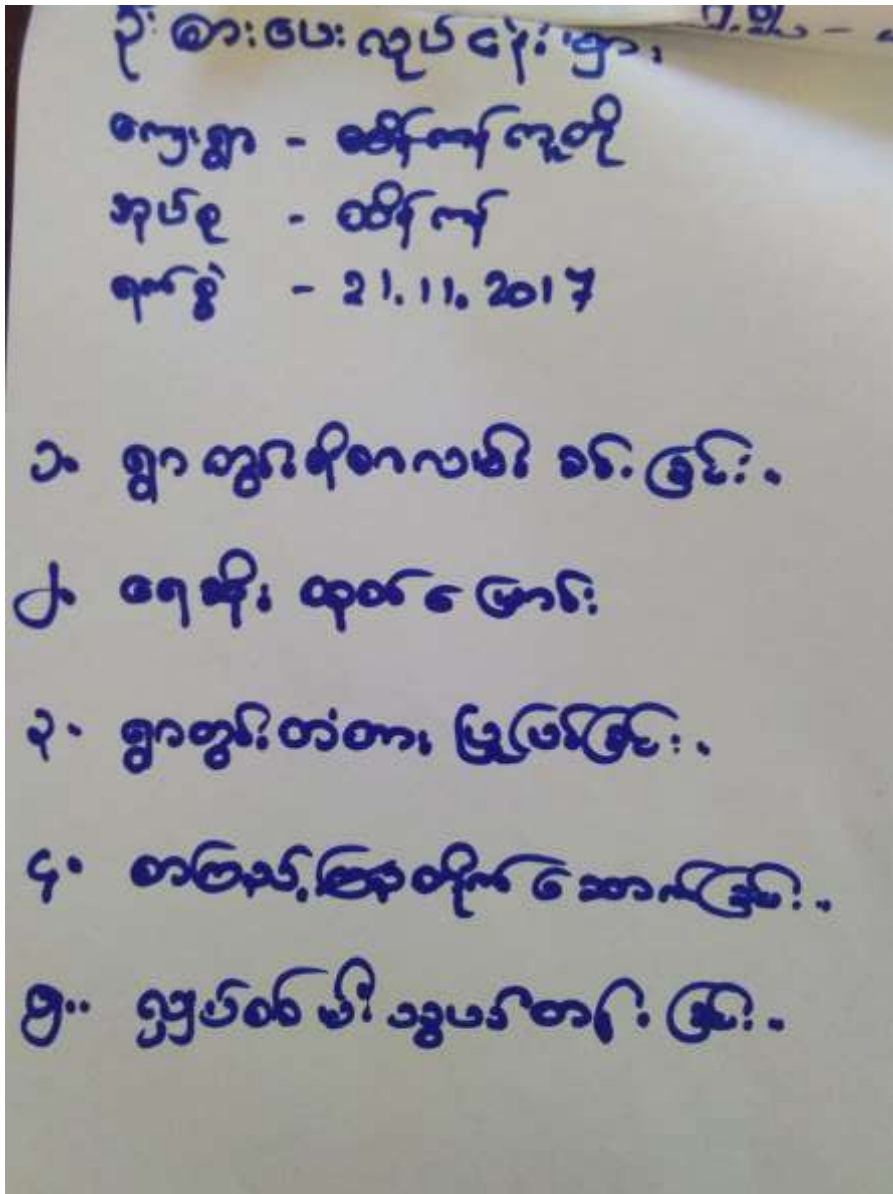 ဦးစားပေးလုပ်ငန်းများ
ကျေးရွာ - ထိန်ကန်ကူတို
အုပ်စု - ထိန်ကန်
ရက်စွဲ - 21.11.2017
၁။ ရွာတွင်း လမ်း ခင်းခြင်း။
၂။ ရေဆိုးထုတ်မြောင်း
၃။ ရွာတွင်းတံတားပြုပြင်ခြင်း။
၄။ စာကြည့်တိုက်ဆောက်ခြင်း။
၅။ လျှပ်စစ်မီးသွယ်တန်းခြင်း။